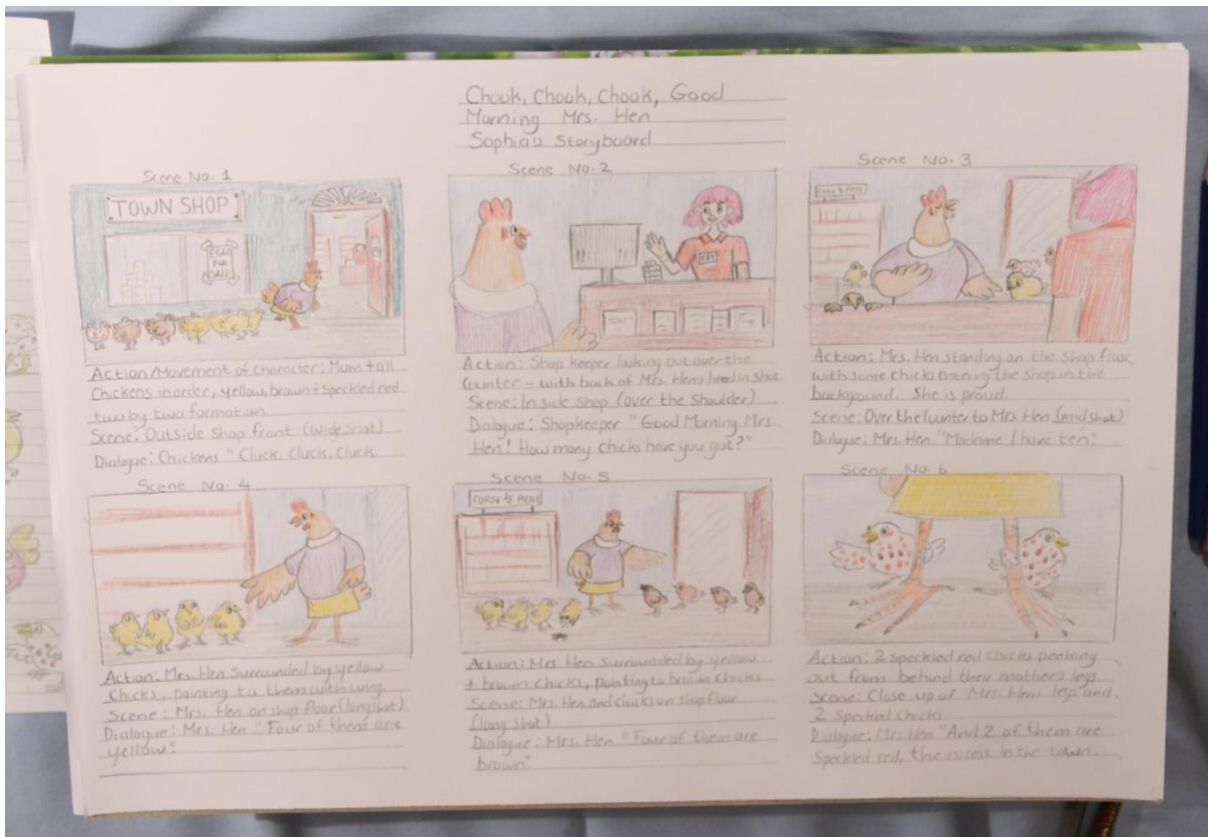 Chook, Chook, Chook, Good
Morning Mrs. Hen
Sophia's Storyboard
Scene No. 1
TOWN SHOP
EGGS
FOR
SALE
Action/Movement of Character: Mum + all
Chickens in order, yellow, brown + speckled red
two by two formation
Scene: Outside Shop front (wide shot)
Dialogue: Chickens "Cluck, Cluck, Cluck
Scene No. 2
CAT
Action: Shop keeper looking out over the
Counter - with back of Mrs. Hen's head in shot
Scene: In side shop (over the shoulder)
Dialogue: Shopkeeper "Good Morning Mrs.
Hen! How many chicks have you got?"
Scene No. 3
CORN & MORE
Action: Mrs. Hen standing on the shop floor
with some chicks entering the shop in the
background. She is proud.
Scene: Over the Counter to Mrs. Hen (mid shot)
Dialogue: Mrs. Hen "Madame I have ten"
Scene No. 4
Action: Mrs. Hen surrounded by yellow
Chicks, pointing to them with wing
Scene: Mrs. Hen on shop floor (long shot)
Dialogue: Mrs. Hen "Four of them are
yellow"
Scene No. 5
CORN & MORE
Action: Mrs Hen surrounded by yellow
+ brown chicks, pointing to brown chicks
Scene: Mrs. Hen and chicks on shop floor
(long shot)
Dialogue: Mrs. Hen "Four of them are
brown"
Scene No. 6
Action: 2 speckled red chicks peeking
out from behind their mothers legs
Scene: Close up of Mrs. Hens legs and
2 Speckled Chicks
Dialogue: Mrs Hen "And 2 of them are
Speckled red, the nicest in the town.